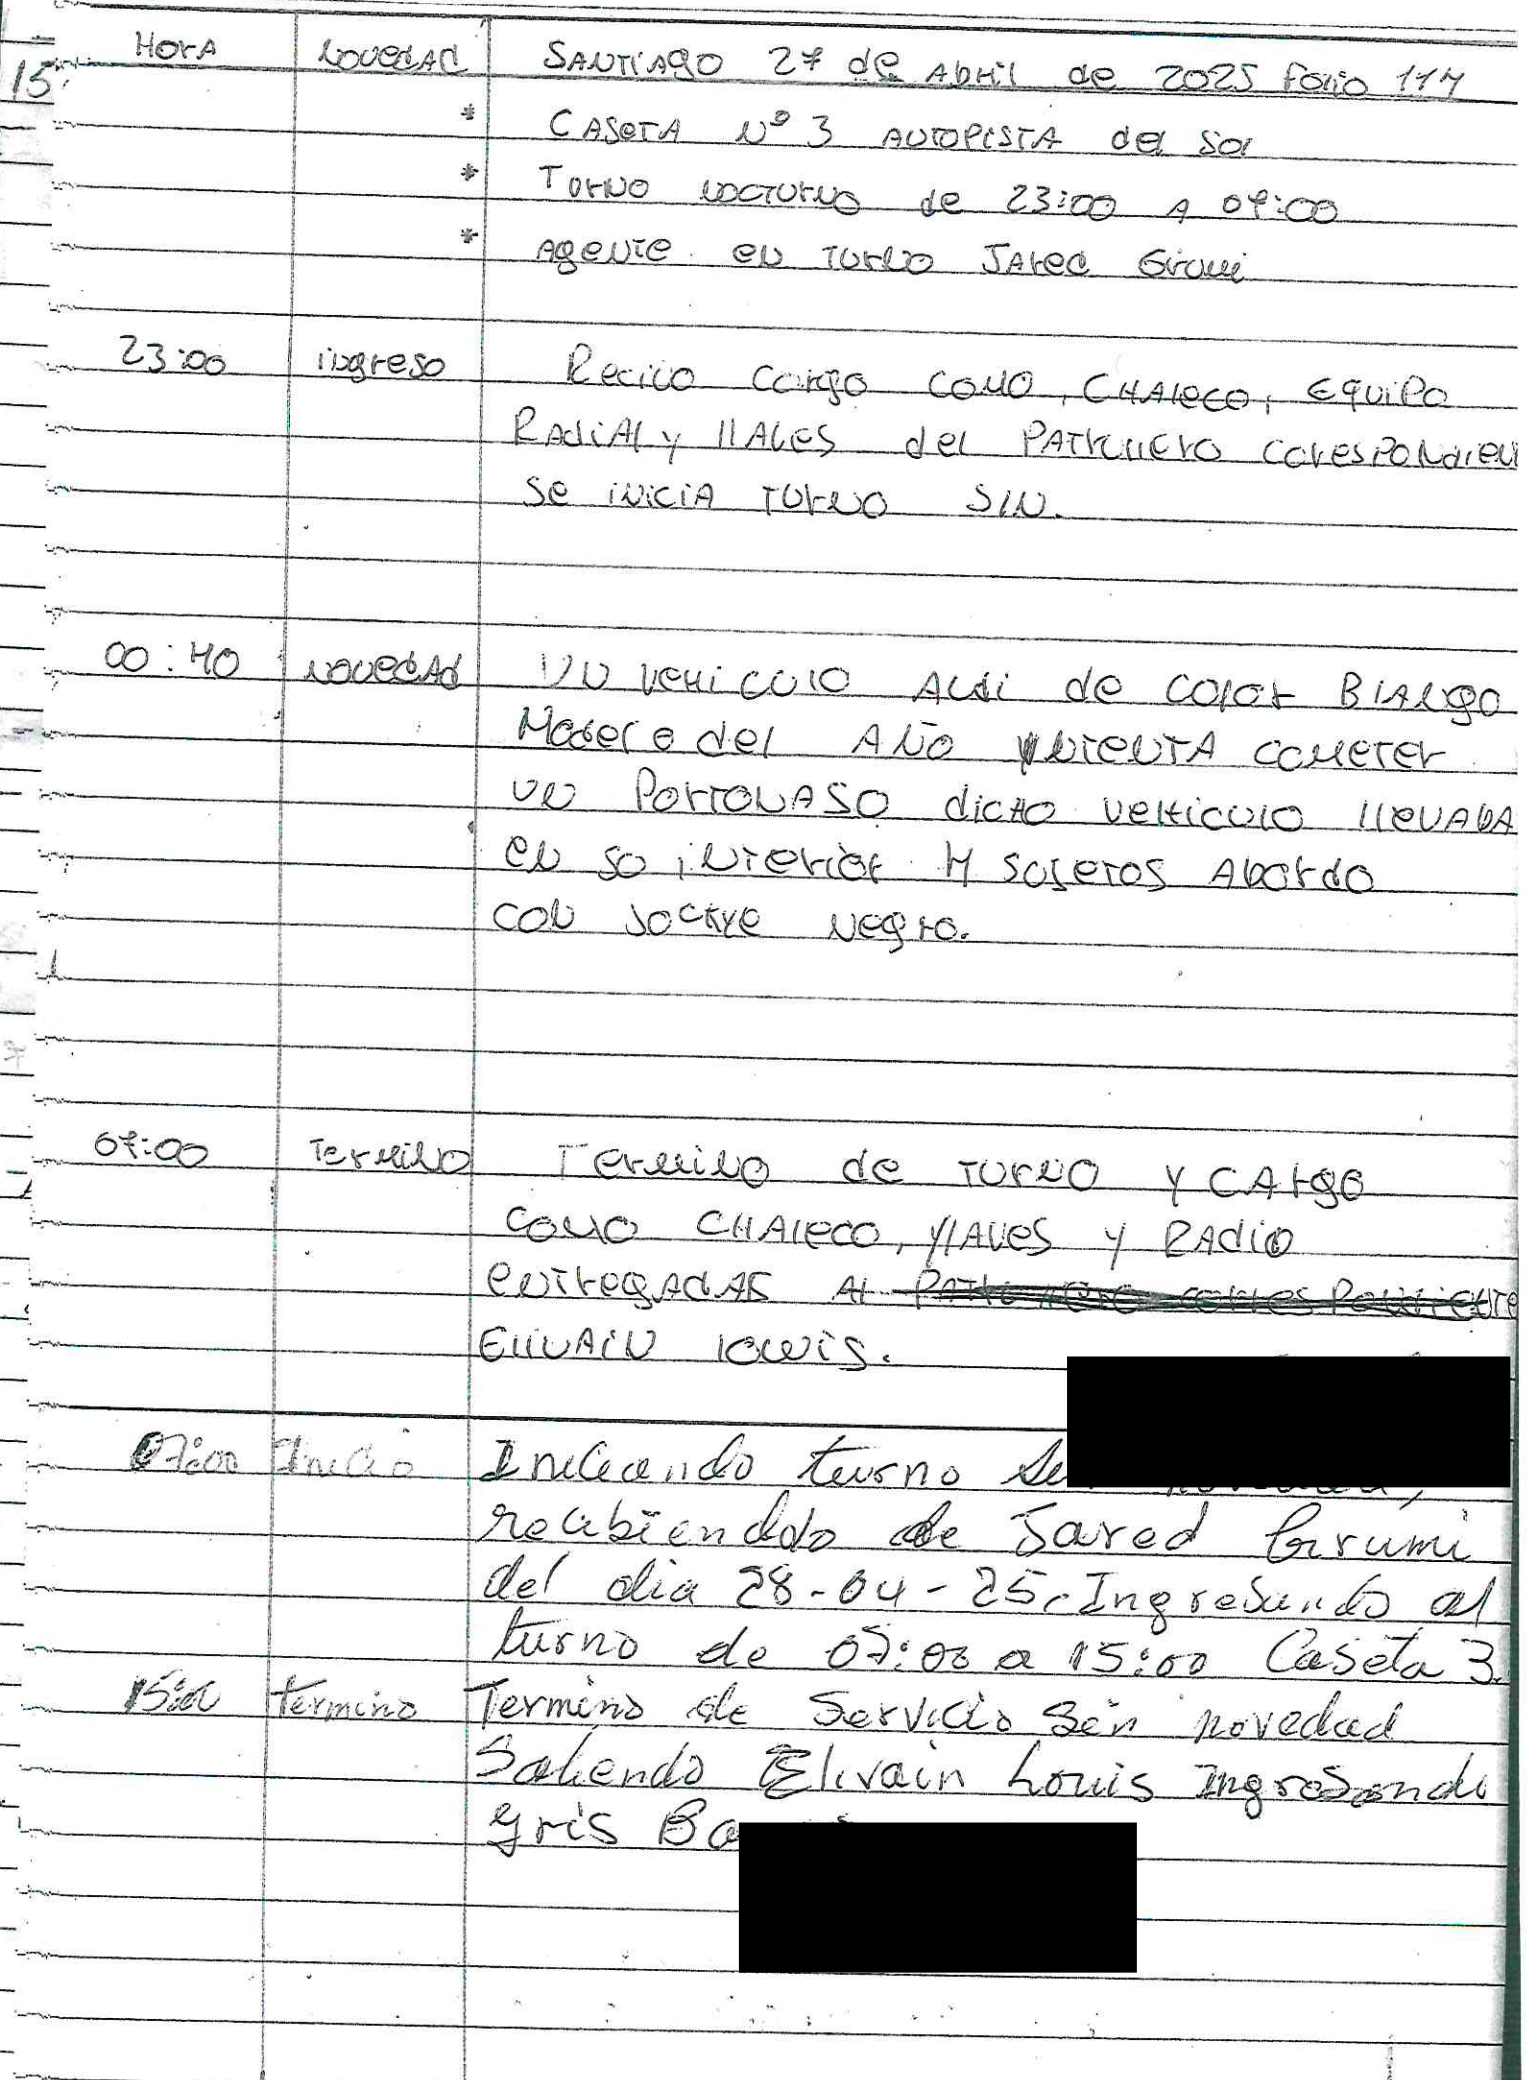 HORA NOVEDAD SANTIAGO 27 de Abril de 2025 Folio 114
15
* CASETA Nº 3 AUTOPISTA del Sol
* TURNO NOCTURNO de 23:00 A 07:00
* Agente en TURNO JARED Grumi
23:00 ingreso Recivo cargo como, CHALECO, EQUIPO
RADIAL y llAVES del PATRULLERO corespondien
se iNiCiA TURNO S/N.
00:40 NOVEDAd UN VEHICULO AUdi de color BLANco
Modelo del AÑO iNTENTA COMETER
UN PORTONASO dicHO VEHICULO llEVABA
EN SO iNTERIOR 4 SOJETOS ABORdO
CON JOCKYE NEgro.
07:00 TERMINO TERMINO de TURNO Y CARgo
COMO CHALECO, llAVES Y RADiO
ENTREgAdAS Al
EllVAIN lowis.
07:00 Inicio Iniciando turno
recibiendo de Jared Grumi
del dia 28-04-25. Ingresando al
turno de 07:00 a 15:00 Caseta 3.
15:00 termino Termino de Servicio Sin novedad
Saliendo Elivain Louis Ingresando
gris